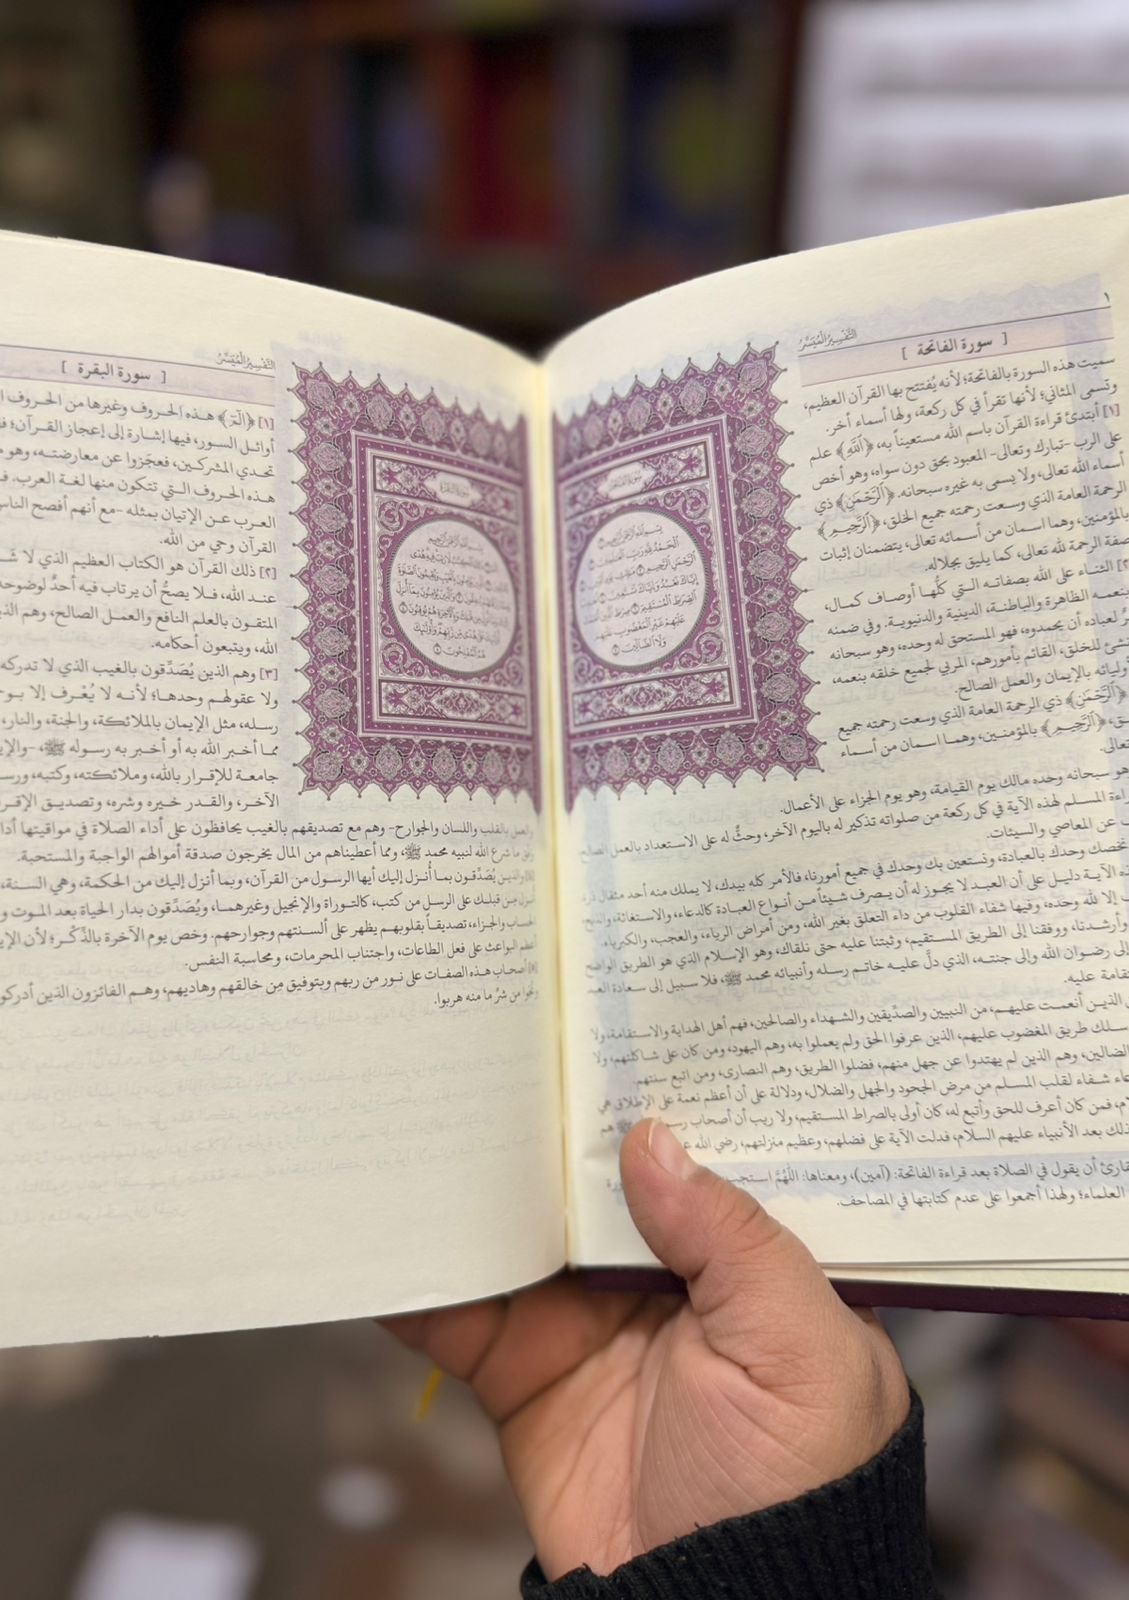 ١
التَّفْسِيرُ الْمُيَسَّرُ
[ سورة الفاتحة ]
سميت هذه السورة بالفاتحة؛ لأنه يُفتتح بها القرآن العظيم،
وتسمى المثاني؛ لأنها تقرأ في كل ركعة، ولها أسماء أخر.
[١] أبتدئ قراءة القرآن باسم الله مستعيناً به، ﴿اللَّهِ﴾ علم
على الرب -تبارك وتعالى- المعبود بحق دون سواه، وهو أخص
أسماء الله تعالى، ولا يسمى به غيره سبحانه. ﴿الرَّحْمَٰنِ﴾ ذي
الرحمة العامة الذي وسعت رحمته جميع الخلق، ﴿الرَّحِيمِ﴾
بالمؤمنين، وهما اسمان من أسمائه تعالى، يتضمنان إثبات
صفة الرحمة لله تعالى، كما يليق بجلاله.
[٢] الثناء على الله بصفاته التي كلُّها أوصاف كمال،
بنعمه الظاهرة والباطنة، الدينية والدنيوية. وفي ضمنه
لعباده أن يحمدوه، فهو المستحق له وحده، وهو سبحانه
للخلق، القائم بأمورهم، المربي لجميع خلقه بنعمه،
بالإيمان والعمل الصالح.
﴿الرَّحْمَٰنِ﴾ ذي الرحمة العامة الذي وسعت رحمته جميع
﴿الرَّحِيمِ﴾ بالمؤمنين، وهما اسمان من أسماء
هو سبحانه وحده مالك يوم القيامة، وهو يوم الجزاء على الأعمال.
المسلم لهذه الآية في كل ركعة من صلواته تذكير له باليوم الآخر، وحثٌّ له على الاستعداد بالعمل الصالح
عن المعاصي والسيئات.
نخصك وحدك بالعبادة، ونستعين بك وحدك في جميع أمورنا، فالأمر كله بيدك، لا يملك منه أحد مثقال ذرة
الآية دليل على أن العبد لا يجوز له أن يصرف شيئاً من أنواع العبادة كالدعاء، والاستغاثة، والذبح
إلا لله وحده، وفيها شفاء القلوب من داء التعلق بغير الله، ومن أمراض الرياء، والعجب، والكبرياء.
وأرشدنا، ووفقنا إلى الطريق المستقيم، وثبتنا عليه حتى نلقاك، وهو الإسلام الذي هو الطريق الواضح
إلى رضوان الله وإلى جنته، الذي دلَّ عليه خاتم رسله وأنبيائه محمد ﷺ، فلا سبيل إلى سعادة العبد
عليه.
الذين أنعمت عليهم، من النبيين والصدِّيقين والشهداء والصالحين، فهم أهل الهداية والاستقامة، ولا
سلك طريق المغضوب عليهم، الذين عرفوا الحق ولم يعملوا به، وهم اليهود، ومن كان على شاكلتهم، ولا
الضالين، وهم الذين لم يهتدوا عن جهل منهم، فضلوا الطريق، وهم النصارى، ومن اتبع سنتهم.
شفاء لقلب المسلم من مرض الجحود والجهل والضلال، ودلالة على أن أعظم نعمة على الإطلاق هي
فمن كان أعرف للحق وأتبع له، كان أولى بالصراط المستقيم، ولا ريب أن أصحاب هم
ذلك بعد الأنبياء عليهم السلام، فدلت الآية على فضلهم، وعظيم منزلتهم، رضي الله
أن يقول في الصلاة بعد قراءة الفاتحة: (آمين)، ومعناها: اللَّهُمَّ استجب،
العلماء؛ ولهذا أجمعوا على عدم كتابتها في المصاحف.
سورة الفاتحة
بسم الله الرحمن الرحيم
الحمد لله رب العالمين
الرحمن الرحيم مالك يوم الدين
إياك نعبد وإياك نستعين اهدنا
الصراط المستقيم صراط الذين
أنعمت عليهم غير المغضوب عليهم
ولا الضالين
التَّفْسِيرُ الْمُيَسَّرُ
[ سورة البقرة ]
[١] ﴿الٓمٓ﴾ هذه الحروف وغيرها من الحروف
أوائل السور، فيها إشارة إلى إعجاز القرآن؛
تحدي المشركين، فعجَزوا عن معارضته، وهو
هذه الحروف التي تتكون منها لغة العرب،
العرب عن الإتيان بمثله -مع أنهم أفصح الناس
القرآن وحي من الله.
[٢] ذلك القرآن هو الكتاب العظيم الذي لا
عند الله، فلا يصحُّ أن يرتاب فيه أحدٌ لوضوحه
المتقون بالعلم النافع والعمل الصالح، وهم
الله، ويتبعون أحكامه.
[٣] وهم الذين يُصَدِّقون بالغيب الذي لا تدركه
ولا عقولهم وحدها؛ لأنه لا يُعْرف إلا
رسله، مثل الإيمان بالملائكة، والجنة، والنار،
مما أخبر الله به أو أخبر به رسوله ﷺ،
جامعة للإقرار بالله، وملائكته، وكتبه،
الآخر، والقدر خيره وشره، وتصديق
والعمل بالقلب واللسان والجوارح- وهم مع تصديقهم بالغيب يحافظون على أداء الصلاة في مواقيتها
وفق ما شرع الله لنبيه محمد ﷺ، ومما أعطيناهم من المال يخرجون صدقة أموالهم الواجبة والمستحبة.
[٤] والذين يُصَدِّقون بما أنزل إليك أيها الرسول من القرآن، وبما أنزل إليك من الحكمة، وهي السنة،
أنزل من قبلك على الرسل من كتب، كالتوراة والإنجيل وغيرهما، ويُصَدِّقون بدار الحياة بعد الموت
الحساب والجزاء، تصديقاً بقلوبهم يظهر على ألسنتهم وجوارحهم. وخص يوم الآخرة بالذِّكْر؛ لأن
أعظم البواعث على فعل الطاعات، واجتناب المحرمات، ومحاسبة النفس.
[٥] أصحاب هذه الصفات على نور من ربهم وبتوفيق مِن خالقهم وهاديهم، وهم الفائزون الذين أدركوا
ونجَوا من شرِّ ما منه هربوا.
سورة البقرة
بسم الله الرحمن الرحيم